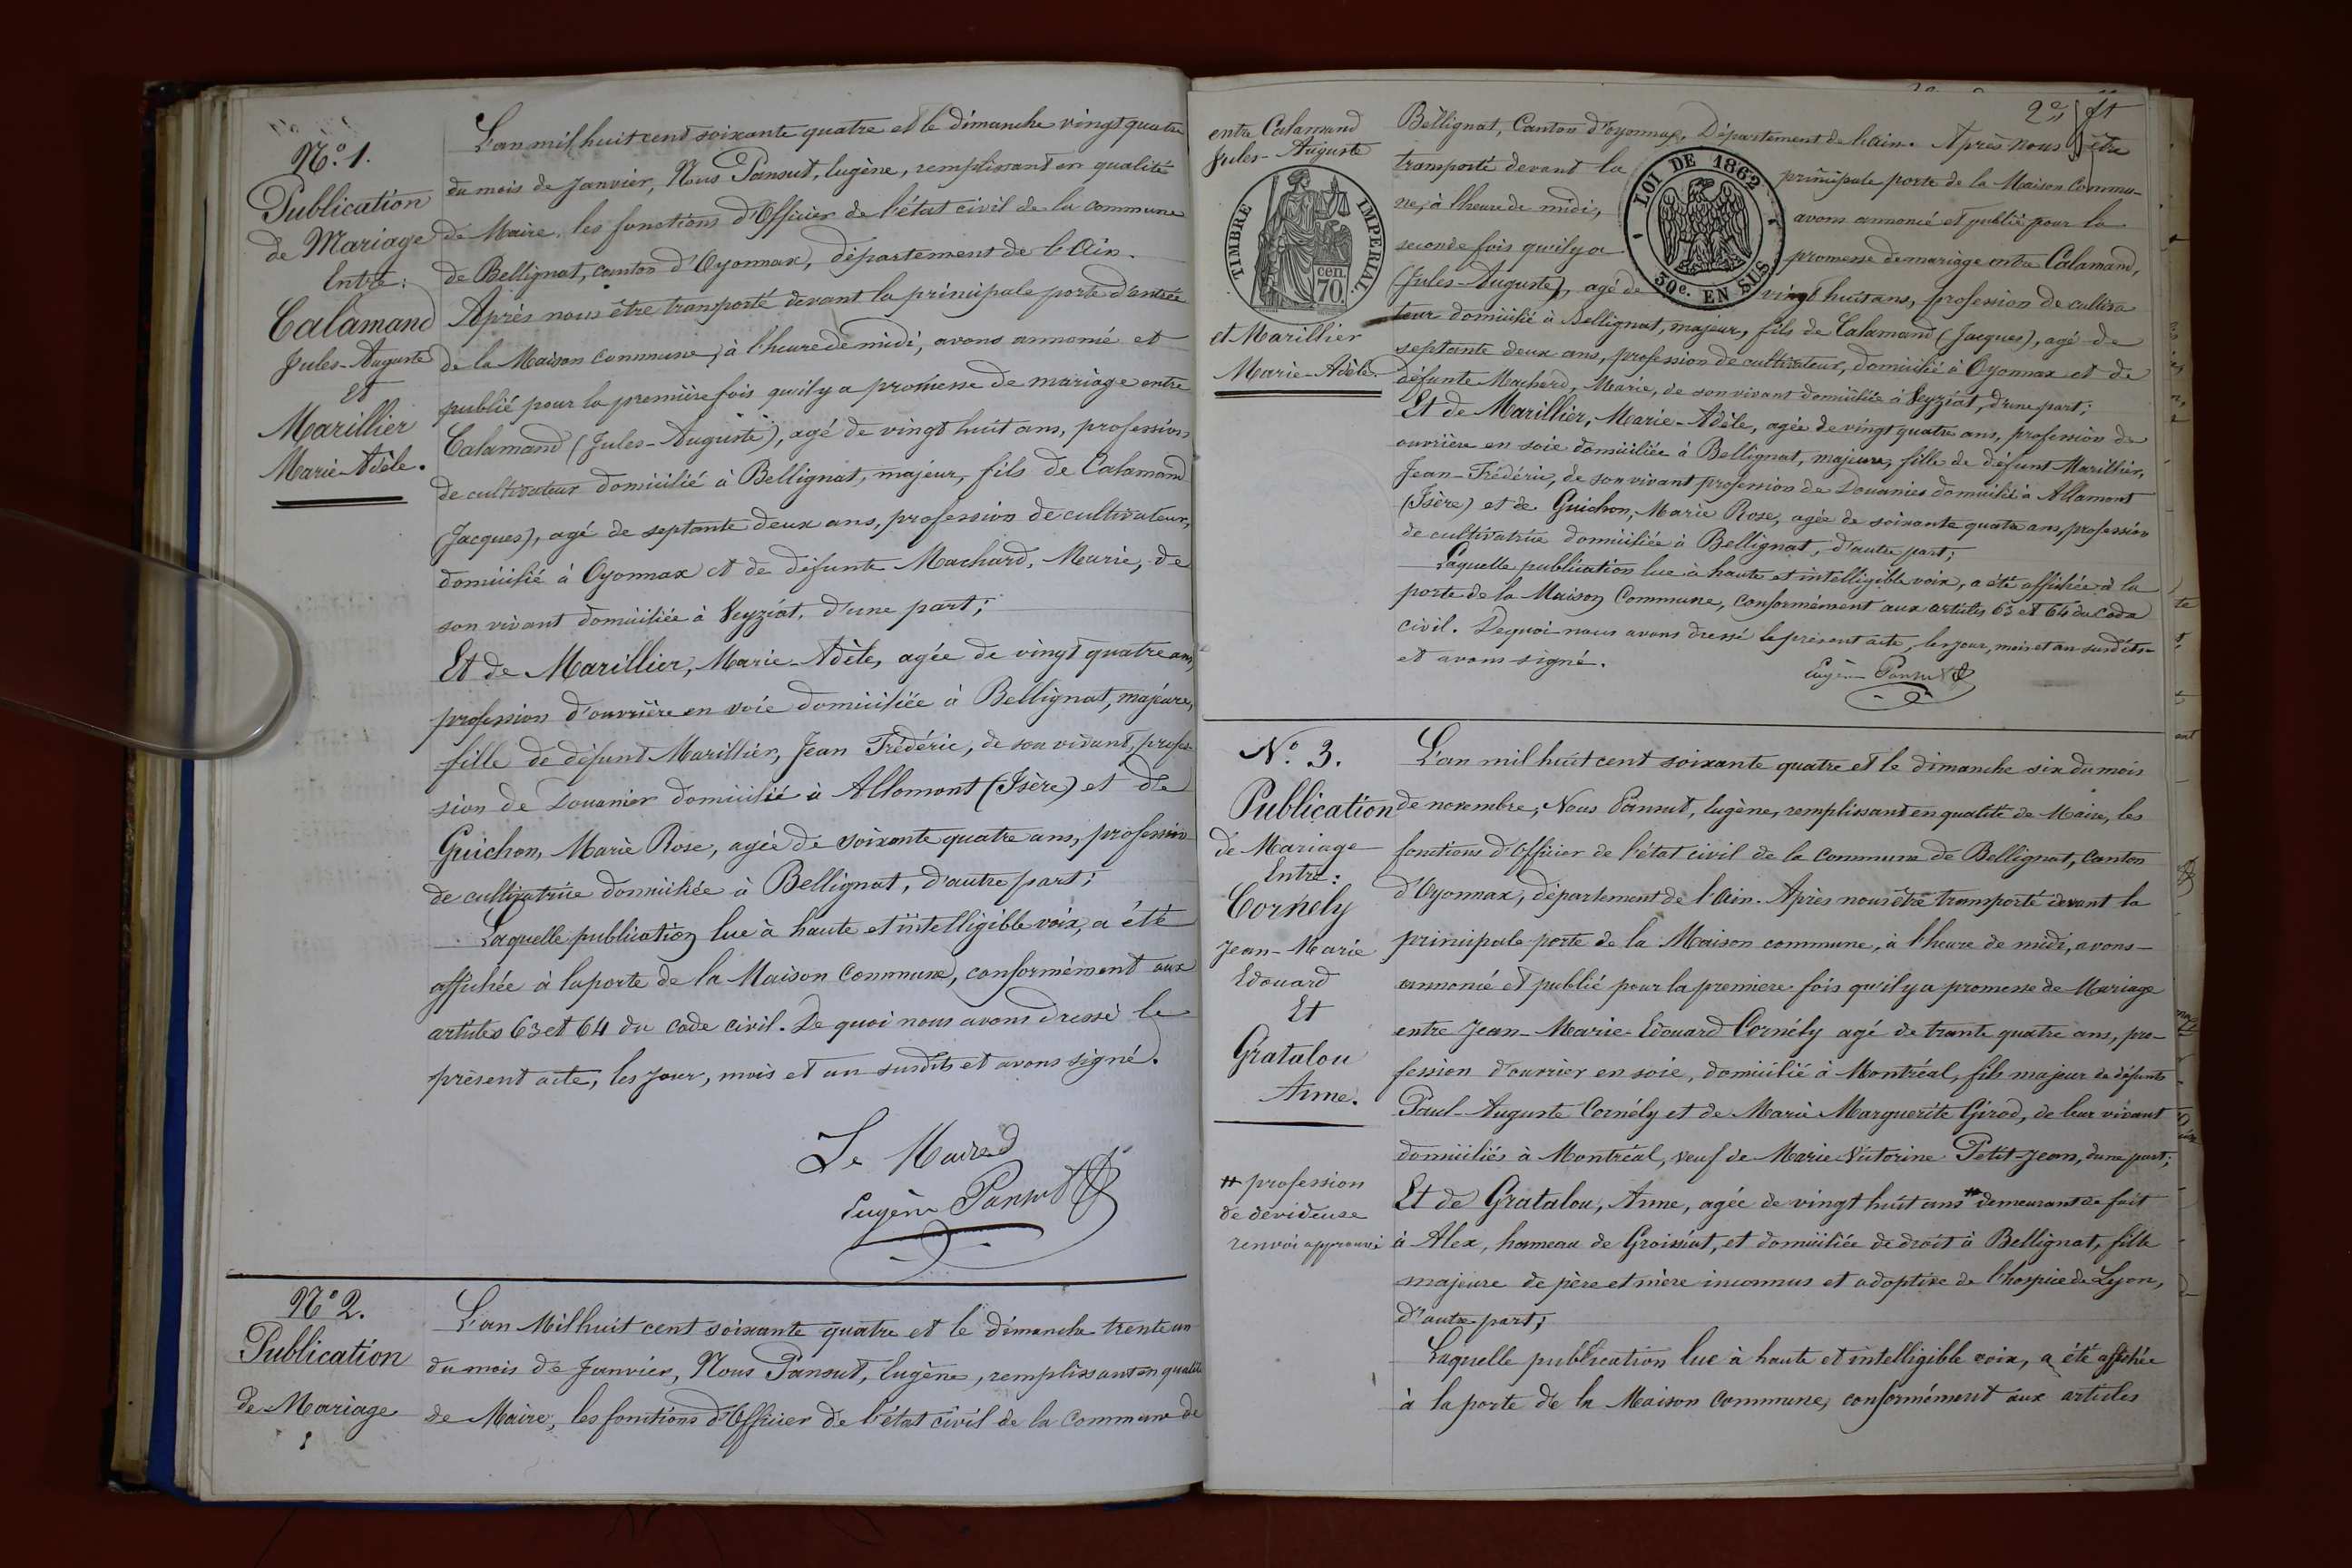 N.º 1.
Publication
de Mariage
Entre :
Calamand
Jules-Auguste
Et
Marillier
Marie-Adèle.
L'an mil huit cent soixante quatre et le dimanche vingt quatre
du mois de Janvier, Nous Pansut, Eugène, remplissant en qualité
de Maire, les fonctions d'Officier de l'état civil de la commune
de Bellignat, canton d'Oyonnax, département de l'Ain.
Après nous être transporté devant la principale porte d'entrée
de la Maison commune, à l'heure de midi, avons annoncé et
publié pour la première fois qu'il y a promesse de mariage entre
Calamand (Jules-Auguste), agé de vingt huit ans, profession
de cultivateur domicilié à Bellignat, majeur, fils de Calamand
(Jacques), agé de septante deux ans, profession de cultivateur,
domicilié à Oyonnax et de défunte Machard, Marie, de
son vivant domiciliée à Veyziat, d'une part ;
Et de Marillier, Marie-Adèle, agée de vingt quatre ans,
profession d'ouvrière en soie domiciliée à Bellignat, majeure,
fille de défunt Marillier, Jean Frédéric, de son vivant, profes-
sion de Douanier domicilié à Allomont (Isère) et de
Guichon, Marie Rose, agée de soixante quatre ans, profession
de cultivatrice domiciliée à Bellignat, d'autre part ;
Laquelle publication lue à haute et intelligible voix, a été
affichée à la porte de la Maison Commune, conformément aux
articles 63 et 64 du code civil. De quoi nous avons dressé le
présent acte, les jour, mois et an susdits et avons signé.
Le Maire
Eugène Pansut
N.º 2.
Publication
de Mariage
L'an Mil huit cent soixante quatre et le dimanche trente un
du mois de Janvier, Nous Pansut, Eugène, remplissant en qualité
de Maire, les fonctions d'Officier de l'état civil de la Commune de
2e
entre Calamand
Jules-Auguste
TIMBRE IMPERIAL.
cen.
70.
et Marillier
Marie-Adèle.
LOI DE 1862
30c. EN SUS
Bellignat, Canton d'Oyonnax, Département de l'Ain. Après nous être
transporté devant la principale porte de la Maison Commu-
ne, à l'heure de midi, avons annoncé et publié pour la
seconde fois qu'il y a promesse de mariage entre Calamand,
(Jules-Auguste), agé de vingt huit ans, profession de cultiva
teur domicilié à Bellignat, majeur, fils de Calamand (Jacques), agé de
septante deux ans, profession de cultivateur, domicilié à Oyonnax et de
défunte Machard, Marie, de son vivant domiciliée à Veyziat, d'une part ;
Et de Marillier, Marie-Adèle, agée de vingt quatre ans, profession de
ouvrière en soie domiciliée à Bellignat, majeure, fille de défunt Marillier,
Jean-Frédéric, de son vivant profession de Douanier domicilié à Allamont
(Isère) et de Guichon, Marie Rose, agée de soixante quatre ans, profession
de cultivatrice domiciliée à Bellignat, d'autre part ;
Laquelle publication lue à haute et intelligible voix, a été affichée à la
porte de la Maison Commune, conformément aux articles 63 et 64 du Code
civil. De quoi nous avons dressé le présent acte, les jour, mois et an susdits
et avons signé.
Eugène Pansut
N.º 3.
Publication
de Mariage
Entre :
Cornély
Jean-Marie
Edouard
Et
Gratalou
Anne.
# profession
de dévideuse
renvoi approuvé
L'an mil huit cent soixante quatre et le dimanche six du mois
de novembre, Nous Pansut, Eugène, remplissant en qualité de Maire, les
fonctions d'Officier de l'état civil de la Commune de Bellignat, Canton
d'Oyonnax, département de l'Ain. Après nous être transporté devant la
principale porte de la Maison commune, à l'heure de midi, avons
annoncé et publié pour la premiere fois qu'il y a promesse de Mariage
entre Jean-Marie-Edouard Cornély agé de trante quatre ans, pro-
fession d'ouvrier en soie, domicilié à Montréal, fils majeur de défunts
Paul-Auguste Cornély et de Marie Marguerite Girod, de leur vivant
domiciliés à Montréal, veuf de Marie-Victorine Petit-Jean, d'une part ;
Et de Gratalou, Anne, agée de vingt huit ans # demeurant de fait
à Alex, hameau de Groissiat, et domiciliée de droit à Bellignat, fille
majeure de père et mère inconnus et adoptive de l'hospice de Lyon,
d'autre part ;
Laquelle publication lue à haute et intelligible voix, a été affichée
à la porte de la Maison Commune, conformément aux articles